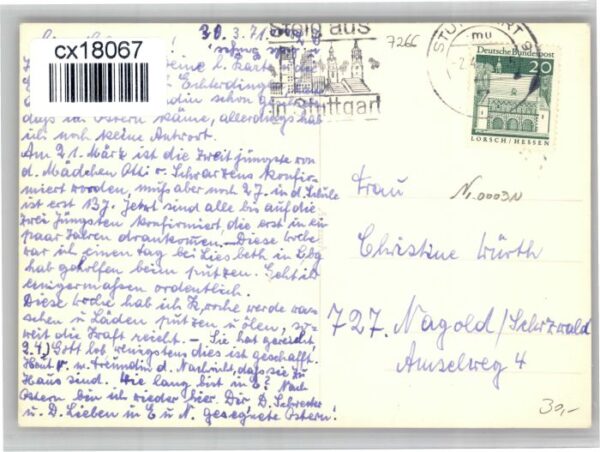 30.3.71
cx18067
Steig aus
in Stuttgart
7266
STUTTGART 9
mu
Deutsche Bundespost
20
LORSCH/HESSEN
Karte
Echterdingen
schon
days in Ostern käme, allerdings hab
ich noch keine Antwort.
Am 21. März ist die zweit jüngste von
d. Mädchen Otti v. Schwarzens konfir-
miert worden, muß aber noch 2 J. in d. Schule
ist erst 13 J. Jetzt sind alle bis auf die
zwei Jüngsten konfirmiert, die erst in ein
paar Jahren drankommen. – Diese Woche
war ich einen Tag bei Liesbeth in
hab geholfen beim putzen. Geht ihr
einigermassen ordentlich.
Diese Woche hab ich werde wa-
schen u. Läden putzen u. ölen, so-
weit die Kraft reicht. – Sie hat gereicht
Gott lob wenigstens dies ist geschafft.
Heut v. m. Freundin d. Nachricht, daß sie zu
Haus sind. Wie lang bist in E? Nach
Ostern bin ich wieder hier. Dir D. Schwester
u. D. Lieben in E u N. gesegnete Ostern!
Frau
Christine Würth
727. Nagold/Schwzwald
Amselweg 4
30,-